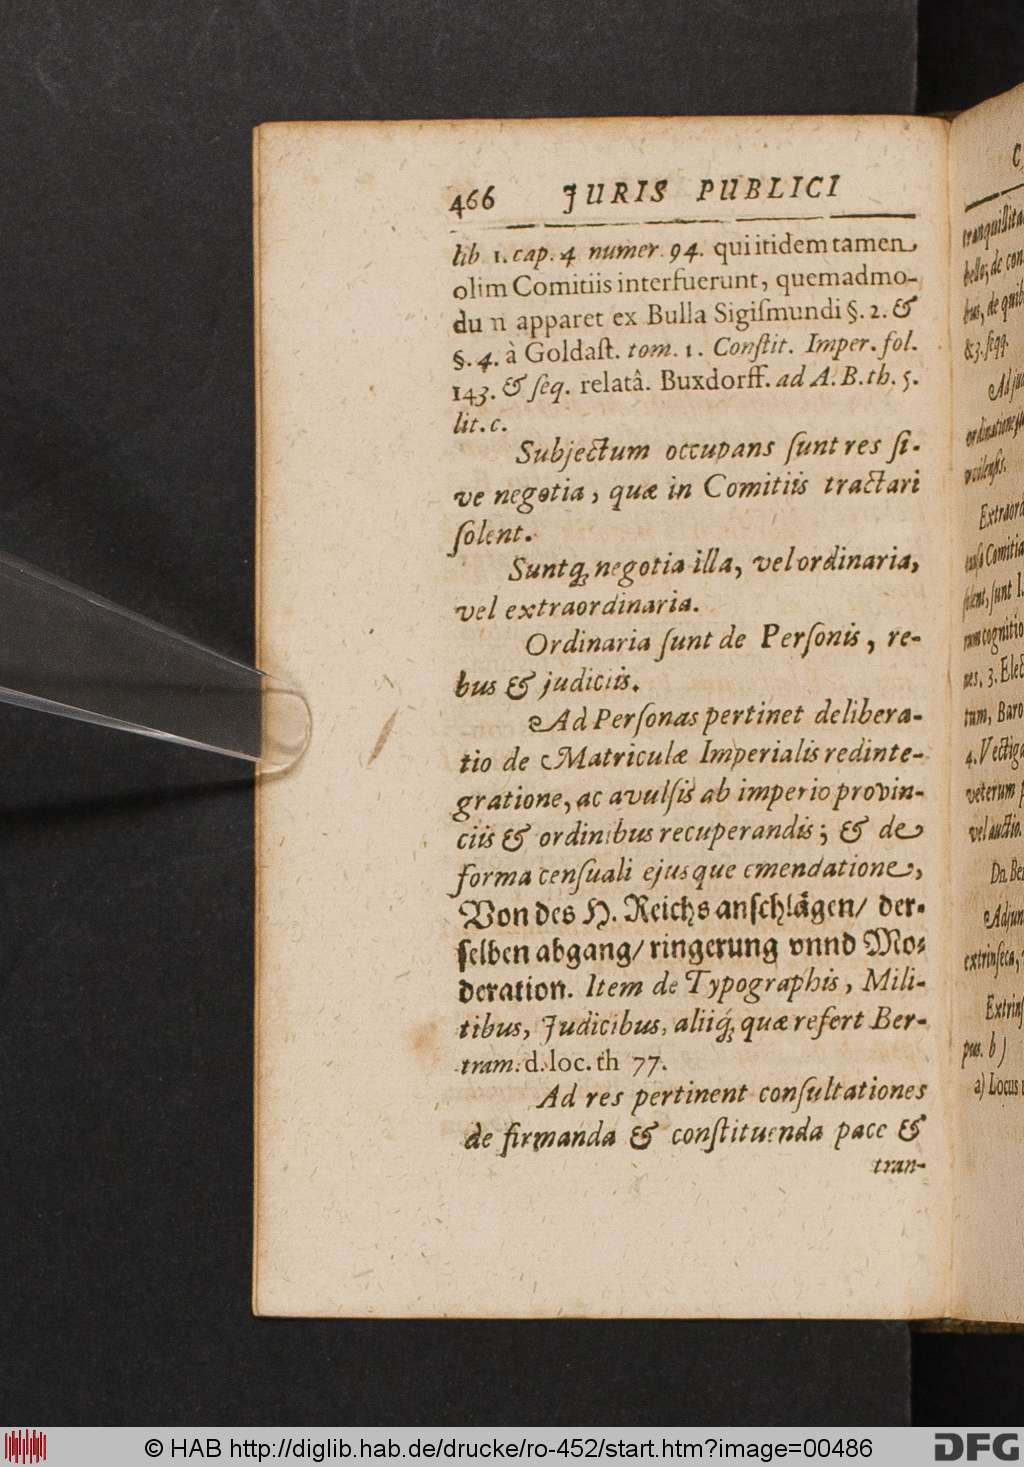 466 JURIS PUBLICI
lib 1. cap. 4 numer. 94. qui itidem tamen
olim Comitiis interfuerunt, quemadmo-
dum apparet ex Bulla Sigiſmundi §. 2. &
§. 4. à Goldaſt. tom. 1. Conſtit. Imper. fol.
143. & ſeq. relatâ. Buxdorff. ad A. B. th. 5.
lit. c.
Subjectum occupans ſunt res ſi-
ve negotia, quæ in Comitiis tractari
ſolent.
Suntq; negotia illa, vel ordinaria,
vel extraordinaria.
Ordinaria ſunt de Perſonis, re-
bus & judiciis.
Ad Perſonas pertinet delibera-
tio de Matriculæ Imperialis redinte-
gratione, ac avulſis ab imperio provin-
ciis & ordinibus recuperandis; & de
forma cenſuali ejusque emendatione,
Von des H. Reichs anſchlägen/ der-
ſelben abgang/ ringerung vnnd Mo-
deration. Item de Typographis, Mili-
tibus, Judicibus, aliiq́; quæ refert Ber-
tram. d. loc. th 77.
Ad res pertinent conſultationes
de firmanda & conſtituenda pace &
tran-
tranquillita
bello; de con
bus, de quib
& 3. ſeqq.
Ad jud
Extraord
ſunt 1.
3. Elect
tum, Baro
4. Vectiga
veterum p
vel auctio.
Dn. Be
Adjun
extrinſeca,
Extrinſ
pus. b)
a) Locus
© HAB http://diglib.hab.de/drucke/ro-452/start.htm?image=00486
DFG